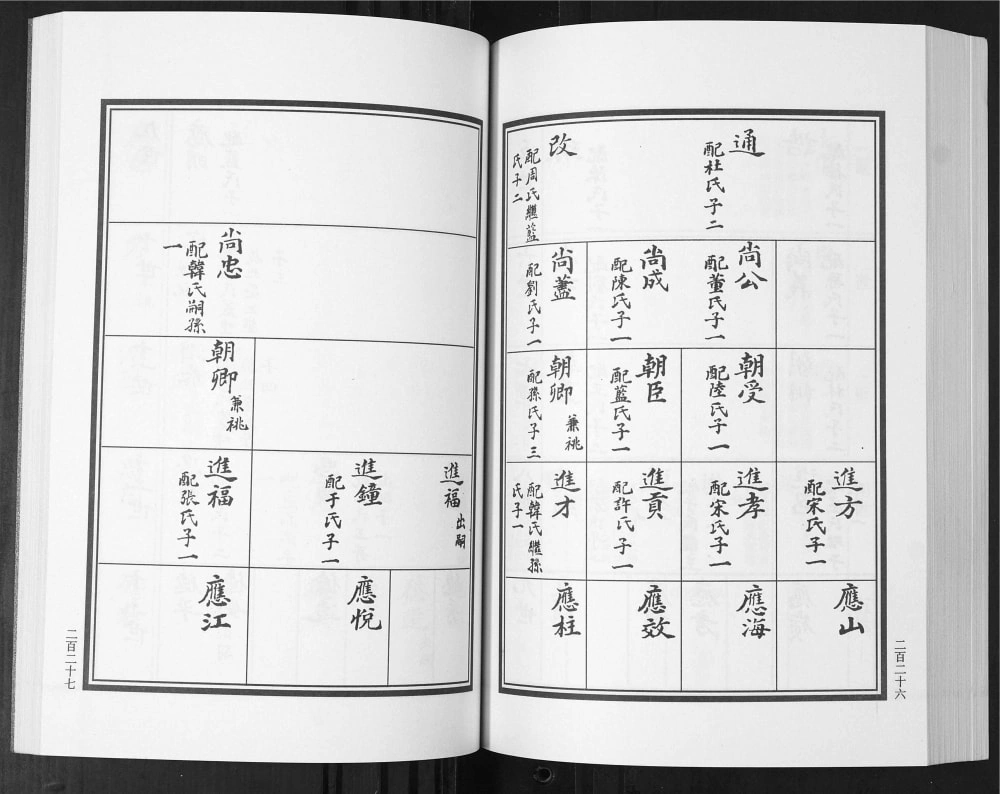 通
配杜氏子二
改
配周氏繼藍
氏子二
尚公
配董氏子一
尚成
配陳氏子一
尚蓋
配劉氏子一
朝受
配陸氏子一
朝臣
配藍氏子一
朝卿
兼祧
配孫氏子三
進方
配宋氏子一
進孝
配宋氏子一
進貢
配許氏子一
進才
配韓氏繼孫
氏子一
應山
應海
應效
應柱
二百二十六
尚忠
配韓氏嗣孫
一
朝卿
兼祧
進福
出嗣
進鐘
配于氏子一
進福
配張氏子一
應悅
應江
二百二十七